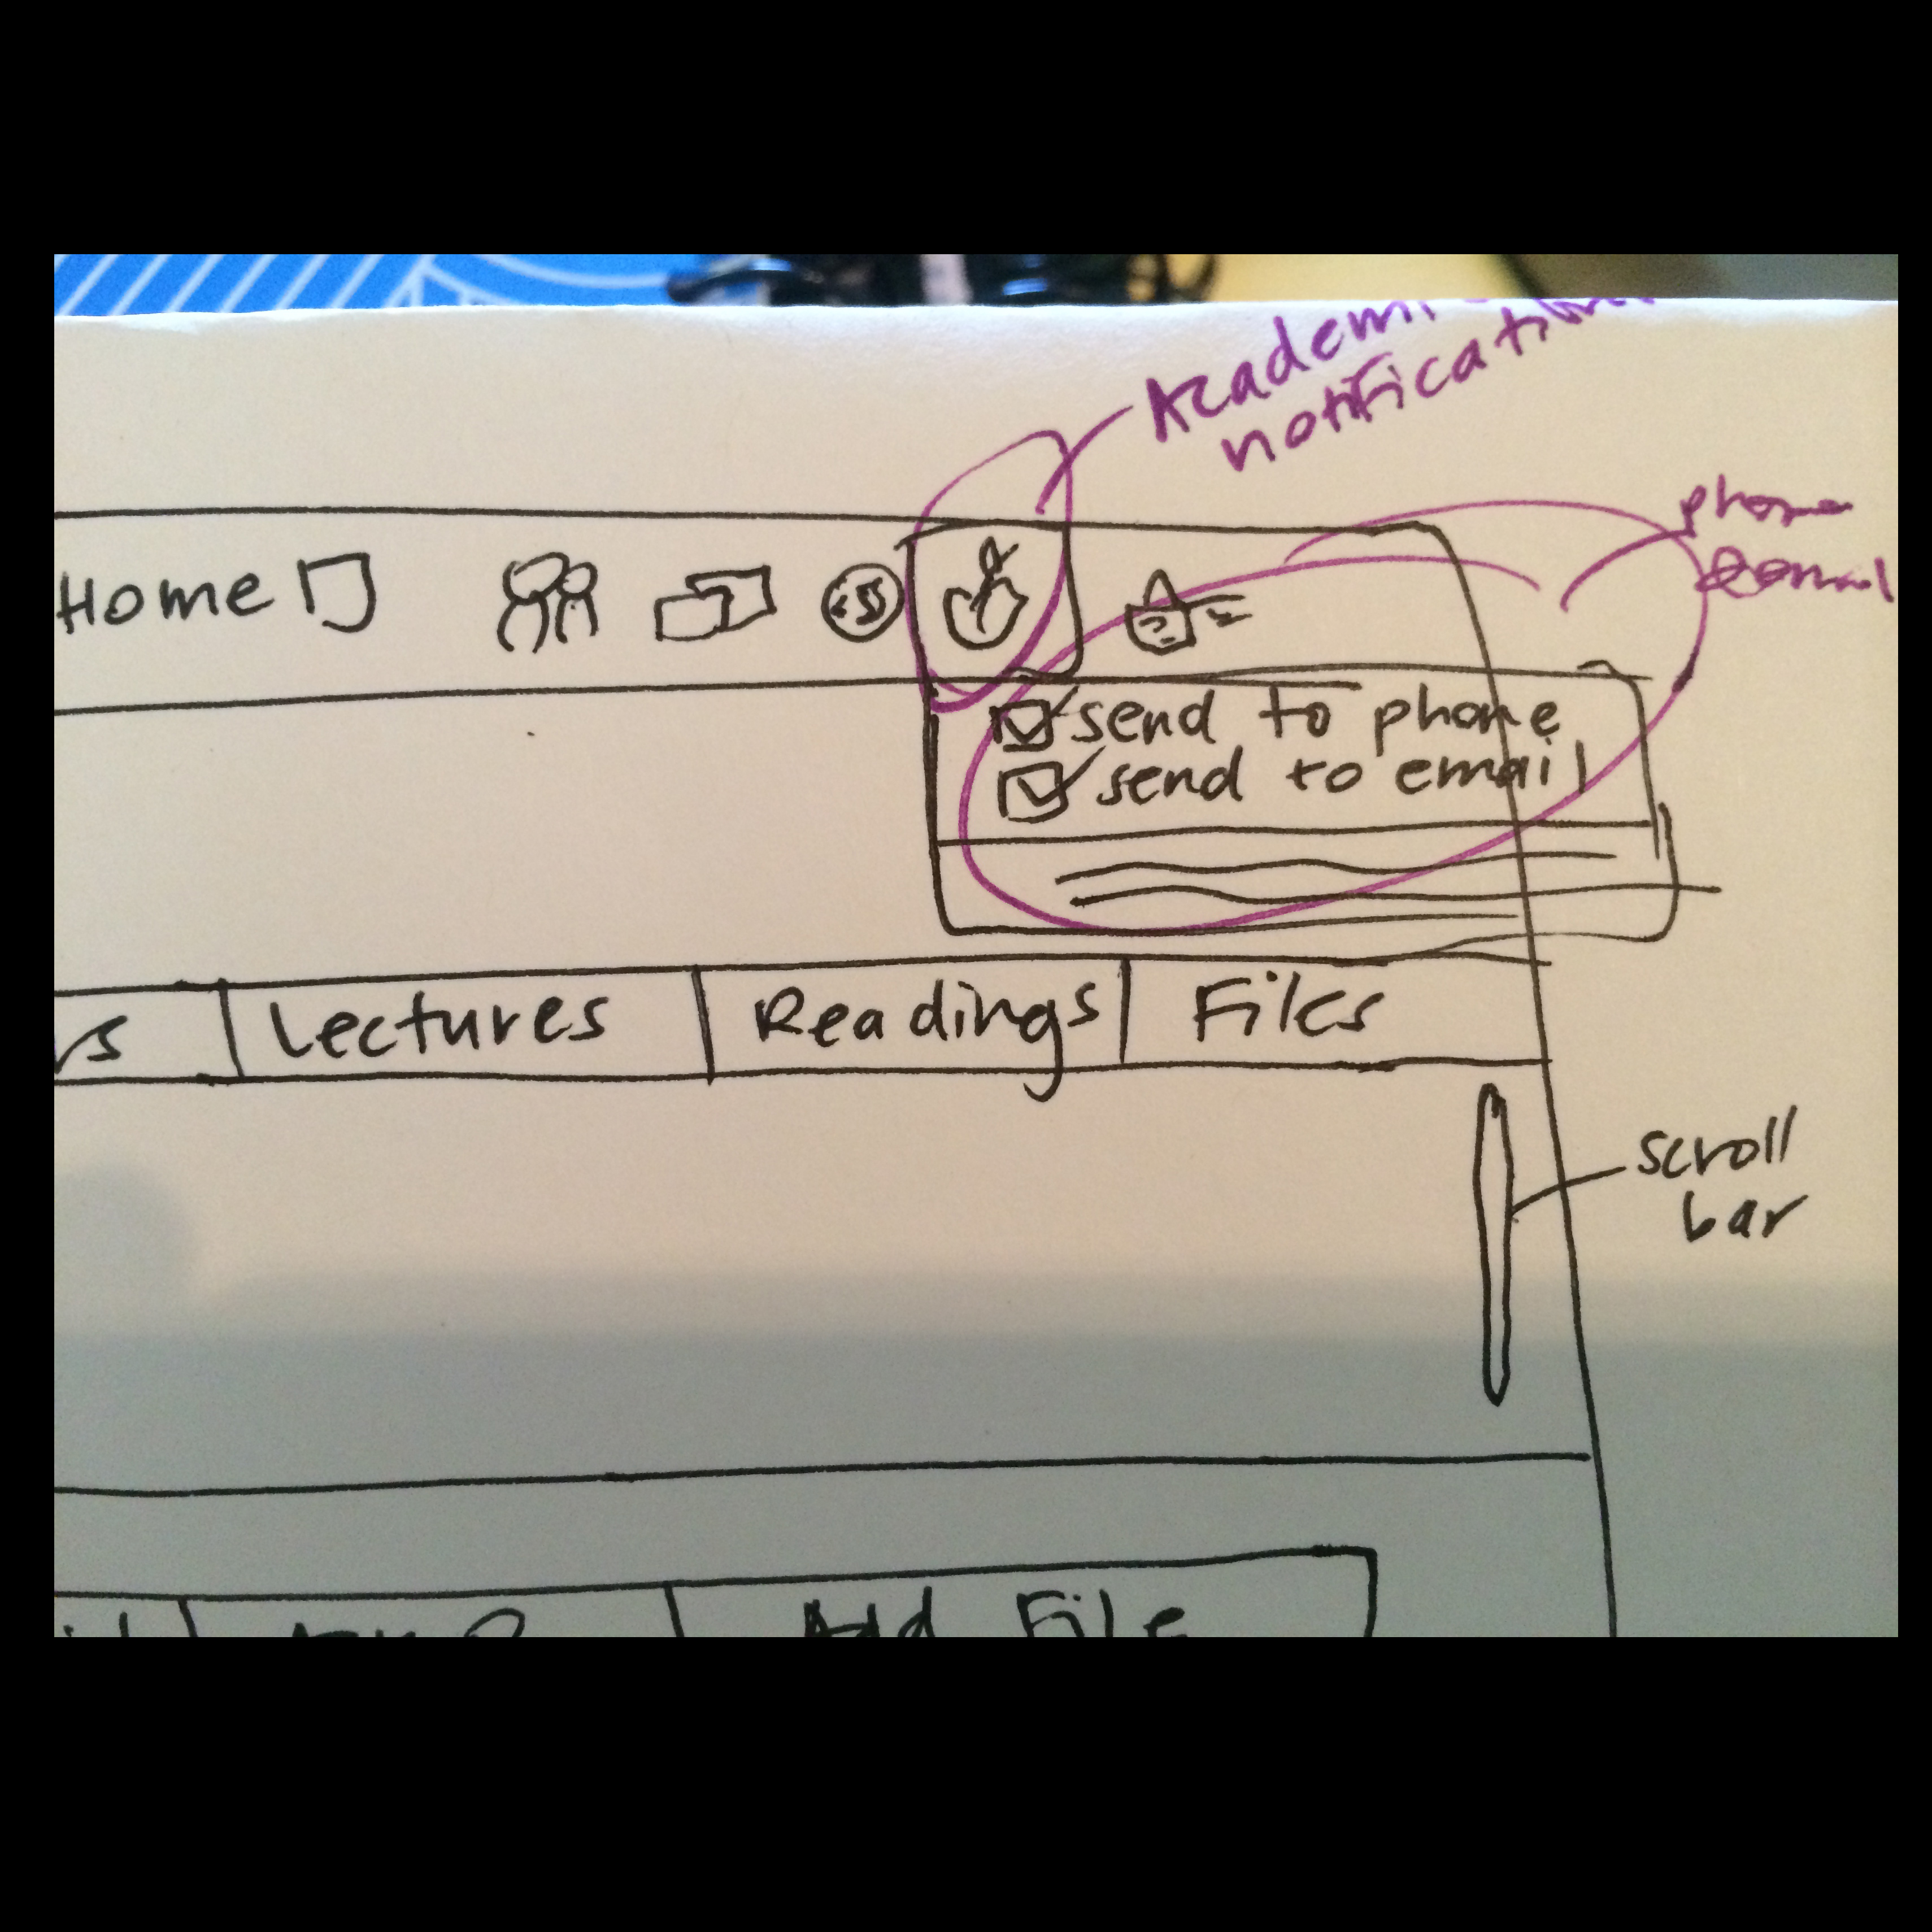 Academi
notification
phone
email
Home
send to phone
send to email
rs
Lectures
Readings
Files
scroll
bar
Add File